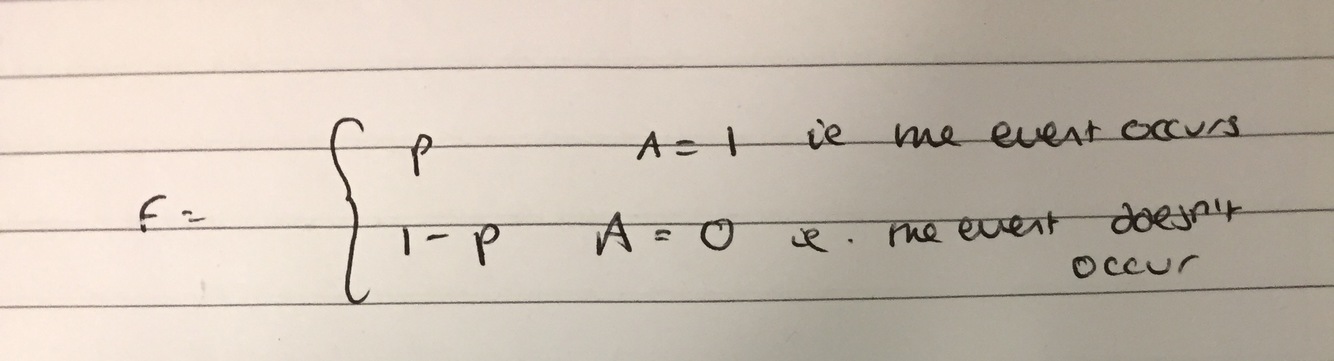 p A = 1 ie the event occurs
F =
1 - p A = 0 ie. the event doesn't
occur